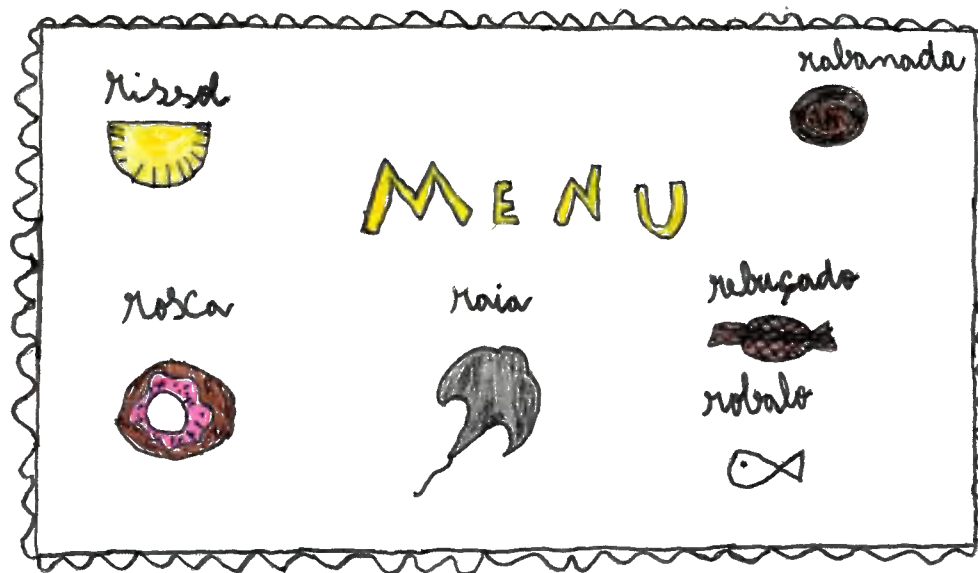 rissol
rabanada
MENU
rosca
raia
rebuçado
robalo